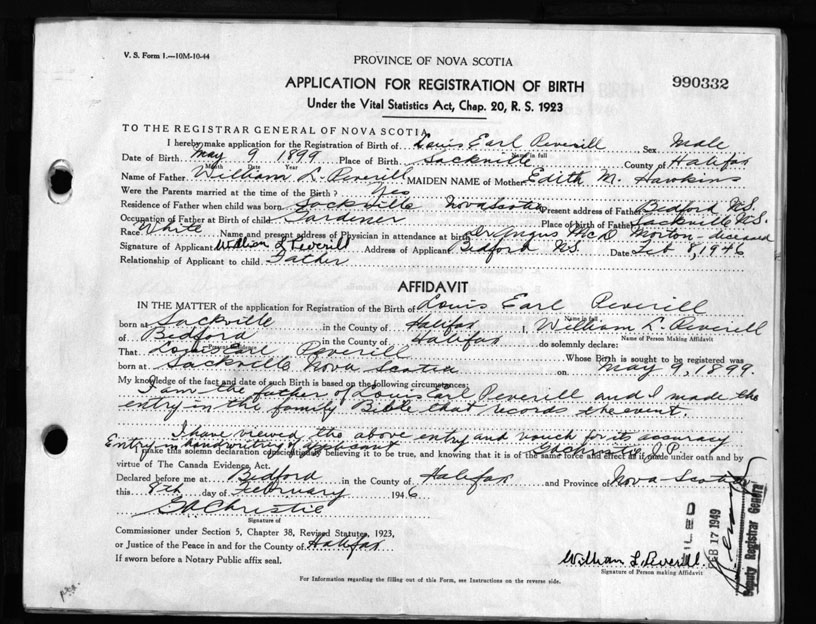 V. S. Form 1.—10M-10-44
PROVINCE OF NOVA SCOTIA
APPLICATION FOR REGISTRATION OF BIRTH
990332
Under the Vital Statistics Act, Chap. 20, R. S. 1923
TO THE REGISTRAR GENERAL OF NOVA SCOTIA
I hereby make application for the Registration of Birth of Louis Earl Peverill Sex Male
Name in full
Date of Birth May 9 1899 Place of Birth Sackville County of Halifax
Month Date Year
Name of Father William L. Peverill MAIDEN NAME of Mother Edith M. Hawkins
Were the Parents married at the time of the Birth? Yes
Residence of Father when child was born Sackville Nova Scotia Present address of Father Bedford N.S.
Occupation of Father at Birth of child Gardener Place of birth of Father Sackville N.S.
Race White Name and present address of Physician in attendance at birth Dr Angus McD. Morton - deceased
Signature of Applicant William L Peverill Address of Applicant Bedford NS Date Feb 8, 1946
Relationship of Applicant to child Father
AFFIDAVIT
IN THE MATTER of the application for Registration of the Birth of Louis Earl Peverill
Name in full
born at Sackville in the County of Halifax I, William L. Peverill
Name of Person Making Affidavit
of Bedford in the County of Halifax do solemnly declare:
Present Residence
That Louis Earl Peverill Whose Birth is sought to be registered was
born at Sackville Nova Scotia on May 9, 1899.
My knowledge of the fact and date of such Birth is based on the following circumstances:
I am the father of Louis Earl Peverill and I made the
entry in the family Bible that records the event.
I have viewed the above entry and vouch for its accuracy
Entry in handwriting of applicant GA Christie J.P.
make this solemn declaration conscientiously believing it to be true, and knowing that it is of the same force and effect as if made under oath and by
virtue of The Canada Evidence, Act.
Declared before me at Bedford in the County of Halifax and Province of Nova Scotia
this 8th day of February 1946
GA Christie
Signature of
Commissioner under Section 5, Chapter 38, Revised Statutes, 1923,
or Justice of the Peace in and for the County of Halifax
If sworn before a Notary Public affix seal.
William L Peverill
Signature of Person making Affidavit
FILED
FEB 17 1949
Deputy Registrar General
For Information regarding the filling out of this Form, see Instructions on the reverse side.